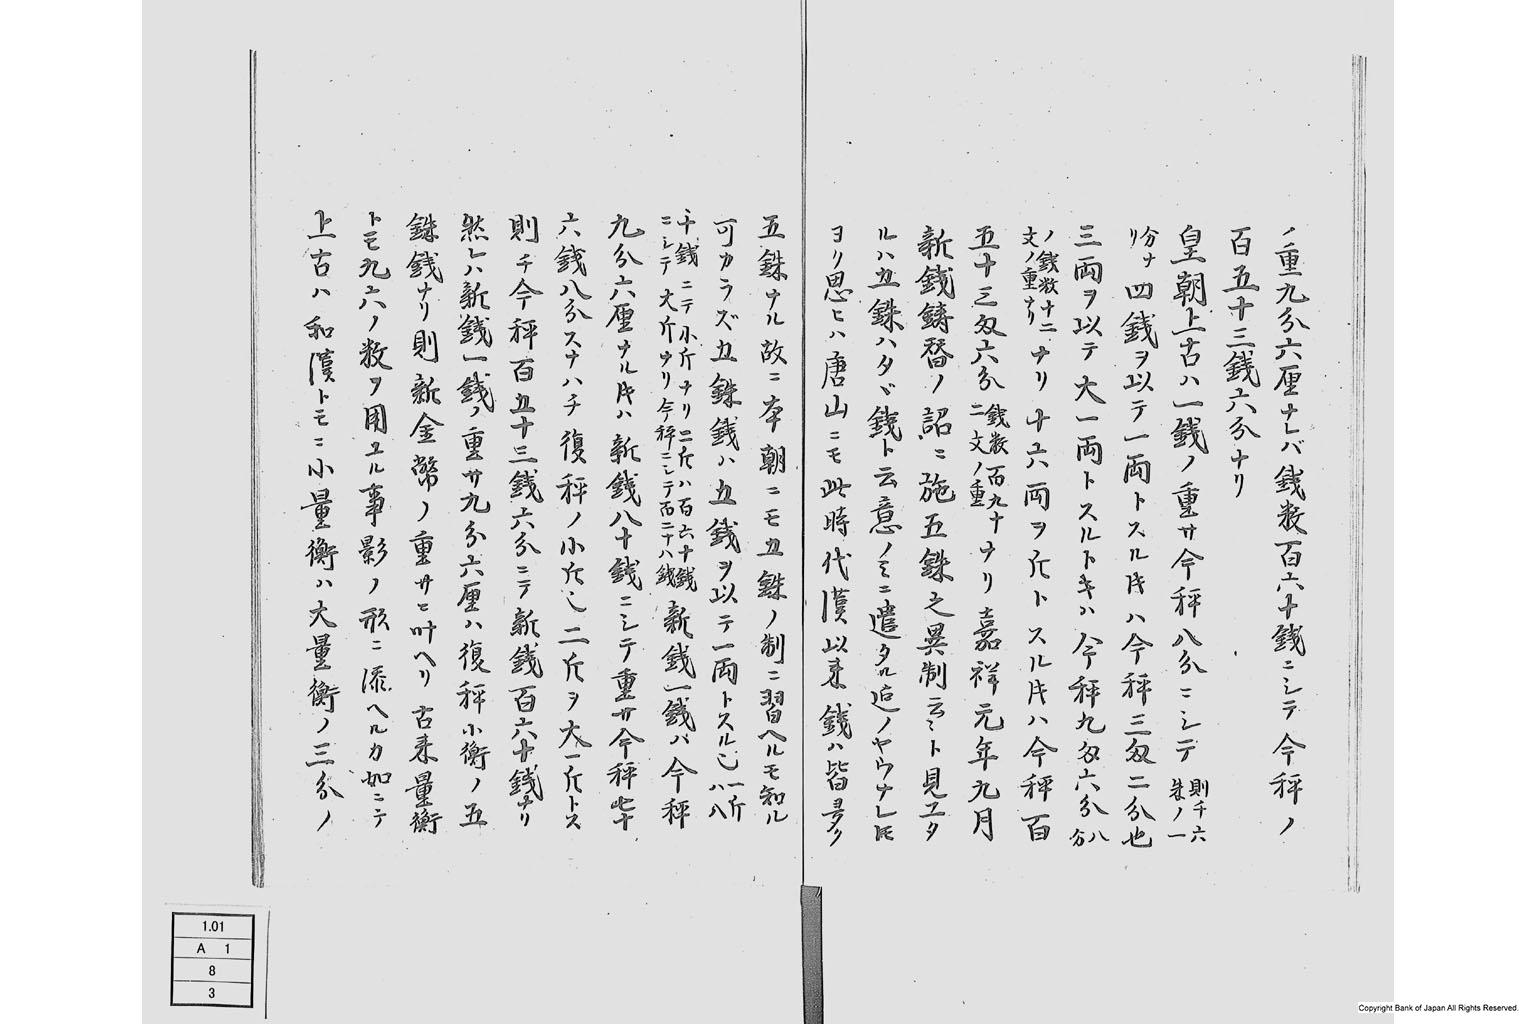 ノ重九分六厘ナレバ銭数百六十銭ニシテ今秤ノ
百五十三銭六分ナリ
皇朝上古ハ一銭ノ重サ今秤八分ニシテ則チ六朱ノ一
分ナリ四銭ヲ以テ一両トスル時ハ今秤三匁二分也
三両ヲ以テ大一両トスルトキハ今秤九匁六分八分
ノ銭数十二文ノ重ナリナリ十六両ヲ斤トスル時ハ今秤百
五十三匁六分銭数百九十二文ノ重ナリ嘉祥元年九月
新銭鋳替ノ詔ニ施五銖之異制云々ト見エタ
ルハ五銖ハタヾ銭ト云意ノミニ遣タル迄ノヤウナレ𪜈
ヨリ思ヒハ唐山ニモ此時代漢以来銭ハ皆多ク
五銖ナル故ニ本朝ニモ五銖ノ制ニ習ヘルモ知ル
可カラズ五銖銭ハ五銭ヲ以テ一両トスル也一斤ハ八
十銭ニテ小斤ナリ二斤ハ百六十銭ニシテ大斤ナリ今秤ニシテ百二十八銭新銭一銭ハ今秤
九分六厘ナル時ハ新銭八十銭ニシテ重サ今秤七十
六銭八分スナハチ復秤ノ小斤也二斤ヲ大一斤トス
則チ今秤百五十三銭六分ニテ新銭百六十銭ナリ
然レハ新銭一銭ノ重サ九分六厘ハ復秤小衡ノ五
銖銭ナリ則新金幣ノ重サニ叶ヘリ古来量衡
トモ九六ノ数ヲ用ユル事影ノ形ニ添ヘルカ如ニテ
上古ハ和漢トモニ小量衡ハ大量衡ノ三分ノ
1.01
A 1
8
3
Copyright Bank of Japan All Rights Reserved.